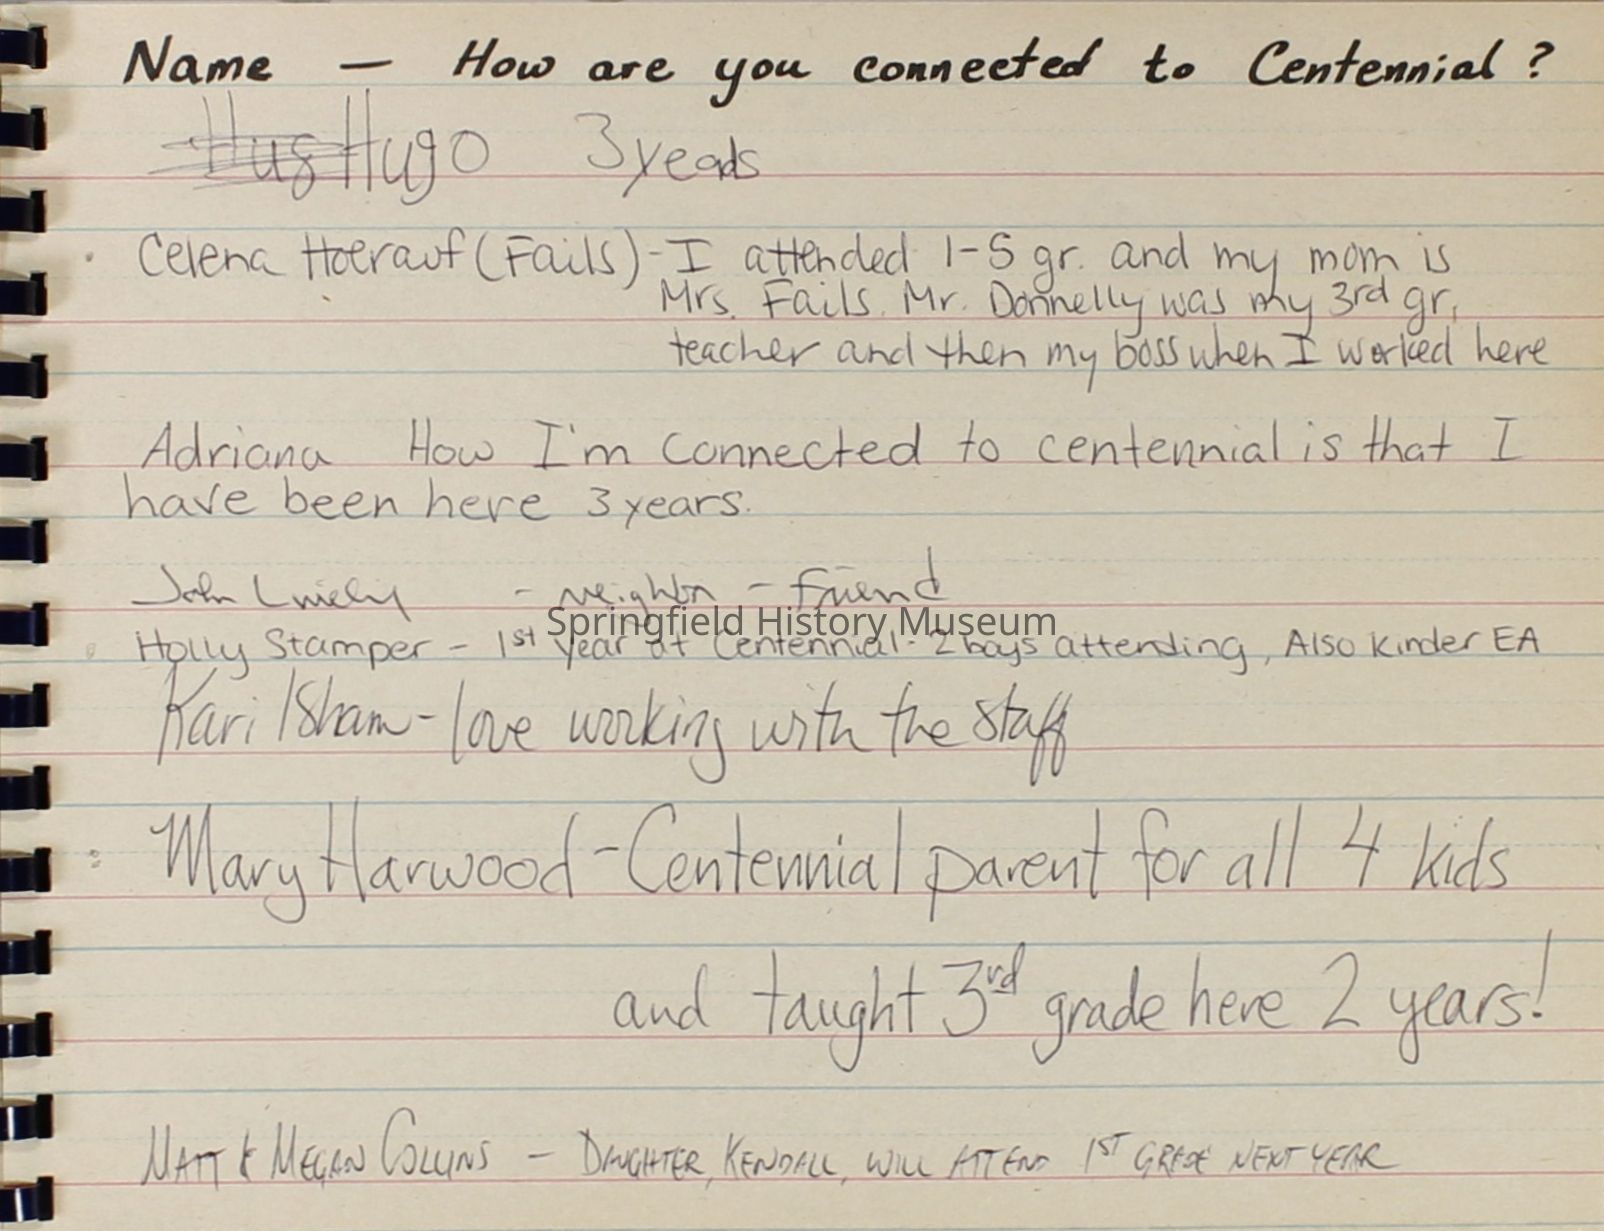 Name — How are you connected to Centennial?
Hug Hugo 3 years
Celena Hoerauf (Fails) - I attended 1-5 gr. and my mom is
Mrs. Fails. Mr. Donnelly was my 3rd gr.
teacher and then my boss when I worked here
Adriana How I'm connected to centennial is that I
have been here 3 years.
John - neighbor - friend
Springfield History Museum
Holly Stamper - 1st year at Centennial - 2 boys attending, Also Kinder EA
Kari Isham - love working with the staff
Mary Harwood - Centennial parent for all 4 kids
and taught 3rd grade here 2 years!
MATT & MEGAN COLLINS - DAUGHTER, KENDALL, WILL ATTEND 1ST GRADE NEXT YEAR